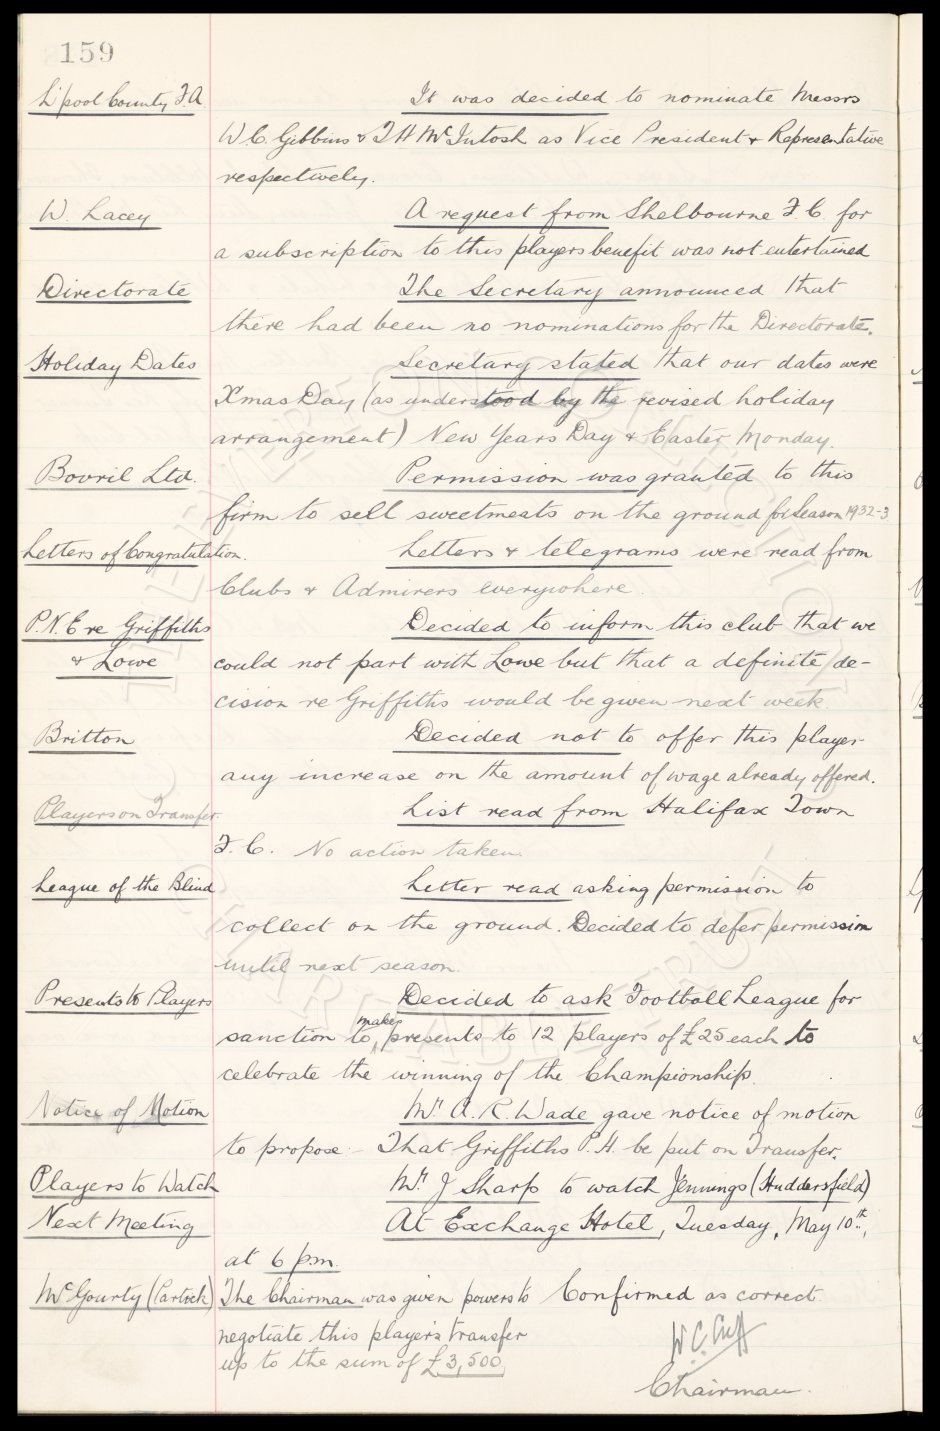 159
L'pool County F.A It was decided to nominate Messrs
W.C. Gibbins & T H McIntosh as Vice President & Representative
respectively.
W. Lacey A request from Shelbourne F C for
a subscription to this players benefit was not entertained
Directorate The Secretary announced that
there had been no nominations for the Directorate.
Holiday Dates Secretary stated that our dates were
Xmas Day (as understood by the revised holiday
arrangement) New Years Day & Easter Monday.
Bovril Ltd. Permission was granted to this
firm to sell sweetmeats on the ground for Season 1932-3
Letters of Congratulation. Letters & telegrams were read from
Clubs & Admirers everywhere.
P.N.E re Griffiths Decided to inform this club that we
& Lowe could not part with Lowe but that a definite de-
cision re Griffiths would be given next week.
Britton Decided not to offer this player
any increase on the amount of wage already offered.
Players on Transfer List read from Halifax Town
F.C. No action taken.
League of the Blind Letter read asking permission to
collect on the ground. Decided to defer permission
until next season.
Presents to Players Decided to ask Football League for
sanction to make presents to 12 players of £25 each to
celebrate the winning of the Championship.
Notice of Motion Mr A. R. Wade gave notice of motion
to propose:- That Griffiths P.H. be put on Transfer.
Players to Watch Mr J Sharp to watch Jennings (Huddersfield)
Next Meeting At Exchange Hotel, Tuesday, May 10th,
at 6 p.m.
McGourty (Partick) The Chairman was given powers to Confirmed as correct.
negotiate this player's transfer
up to the sum of £3,500. W. C. Cuff
Chairman.
THE EVERTON COLLECTION
CHARITABLE TRUST